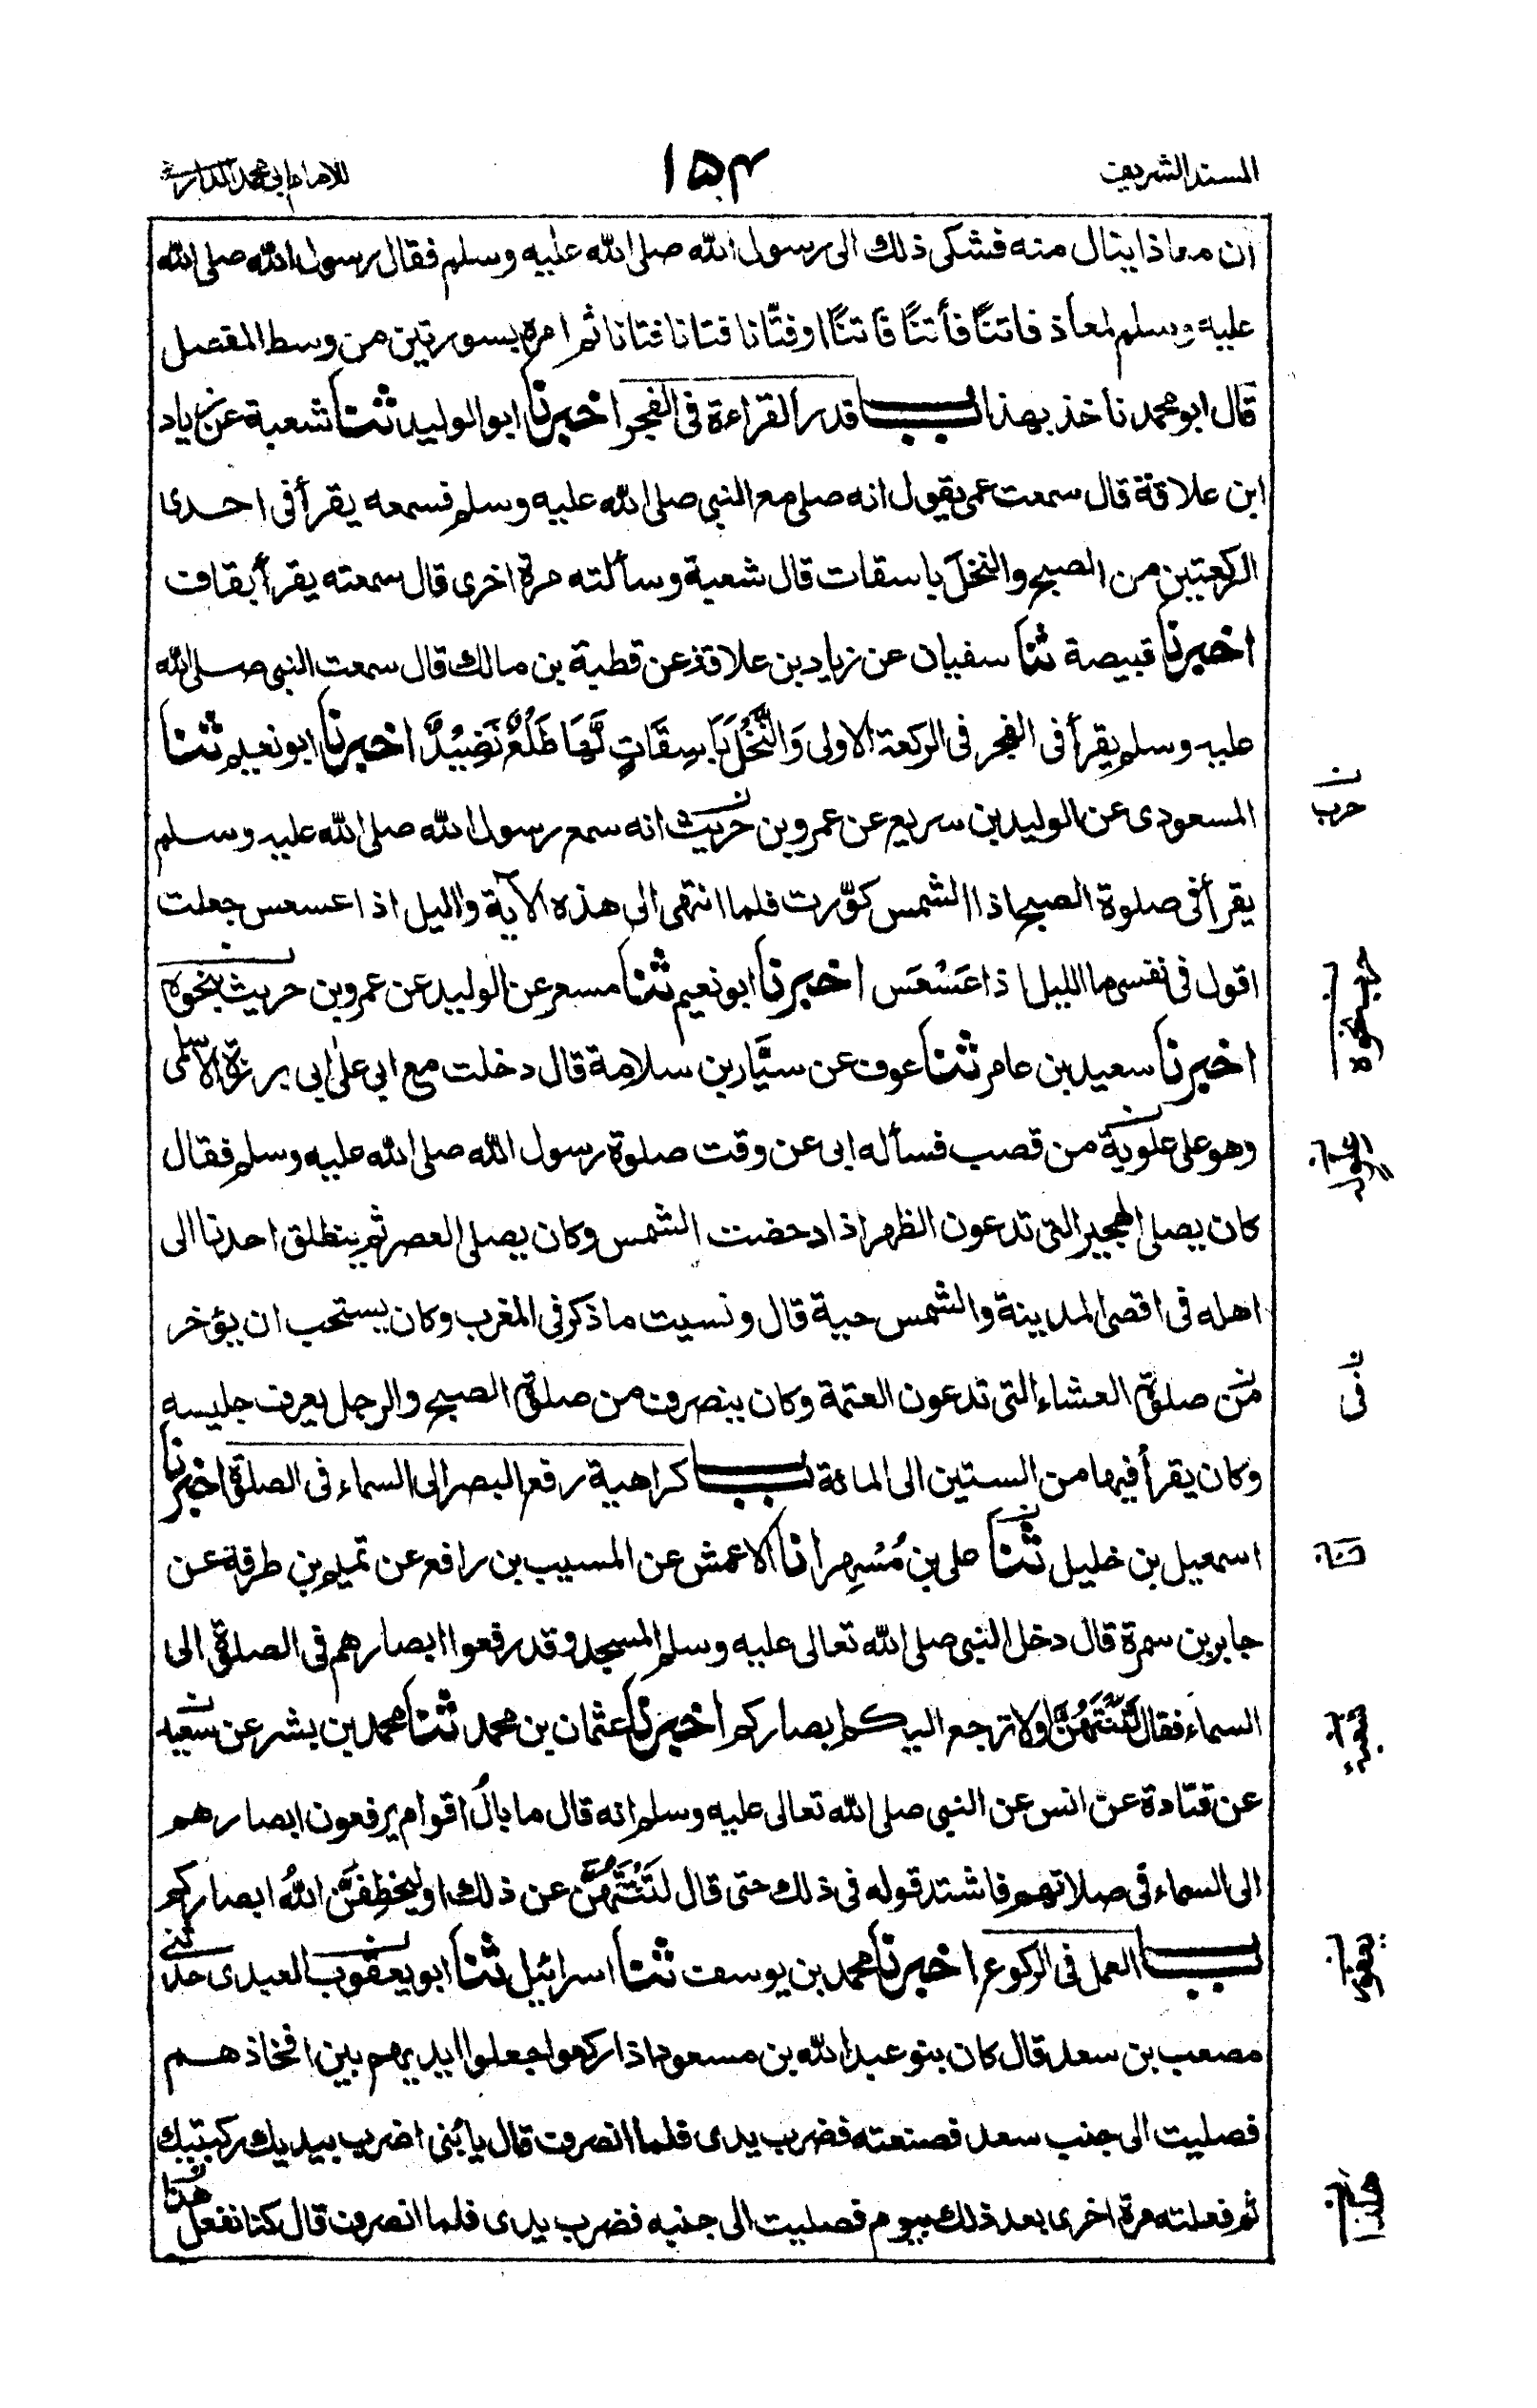 المسند الشريف
١٥٤
للامام ابي محمد الدارمي
ان معاذا ينال منه فشكى ذلك الى رسول الله صلى الله عليه وسلم فقال رسول الله صلى الله
عليه وسلم لمعاذ فاتنًا فأتنًا فاتنًا اوفتّانا فتانا فتانا ثم امره بسورتين من وسط المفصل
قال ابو محمد نأخذ بهذا باب قدر القراءة فى الفجر اخبرنا ابو الوليد ثنا شعبة عن زياد
ابن علاقة قال سمعت عمى يقول انه صلى مع النبى صلى الله عليه وسلم فسمعه يقرأ فى احدى
الركعتين من الصبح والنخل باسقات قال شعبة وسألته مرة اخرى قال سمعته يقرأ بقاف
اخبرنا قبيصة ثنا سفيان عن زياد بن علاقة عن قطبة بن مالك قال سمعت النبى صلى الله
عليه وسلم يقرأ فى الفجر فى الركعة الاولى وَالنَّخْلَ بَاسِقَاتٍ لَّهَا طَلْعٌ نَضِيْدٌ اخبرنا ابو نعيم ثنا
المسعودى عن الوليد بن سريع عن عمرو بن حريث انه سمع رسول الله صلى الله عليه وسلم
يقرأ فى صلوة الصبح اذا الشمس كوّرت فلما انتهى الى هذه الآية والليل اذا عسعس جعلت
اقول فى نفسى ما الليل اذا عَسْعَس اخبرنا ابو نعيم ثنا مسعر عن الوليد عن عمرو بن حريث بنحوه
اخبرنا سعيد بن عامر ثنا عوف عن سيَّار بن سلامة قال دخلت مع ابى على ابى برزة الاسلمى
وهو على علوية من قصب فسأله ابى عن وقت صلوة رسول الله صلى الله عليه وسلم فقال
كان يصلى الهجير التى تدعون الظهر اذا دحضت الشمس وكان يصلى العصر ثم ينطلق احدنا الى
اهله فى اقصى المدينة والشمس حية قال ونسيت ما ذكر فى المغرب وكان يستحب ان يؤخر
من صلوة العشاء التى تدعون العتمة وكان ينصرف من صلوة الصبح والرجل يعرف جليسه
وكان يقرأ فيها من الستين الى المائة باب كراهية رفع البصر الى السماء فى الصلوة اخبرنا
اسمعيل بن خليل ثنا على بن مُسْهِر انا الاعمش عن المسيب بن رافع عن تميم بن طرفة عن
جابر بن سمرة قال دخل النبى صلى الله تعالى عليه وسلم المسجد وقد رفعوا ابصارهم فى الصلوة الى
السماء فقال لَتَنْتَهُنَّ اولا ترجع اليكم ابصاركم اخبرنا عثمان بن محمد ثنا محمد بن بشر عن سعيد
عن قتادة عن انس عن النبى صلى الله تعالى عليه وسلم انه قال ما بالُ اقوام يرفعون ابصارهم
الى السماء فى صلاتهم فاشتد قوله فى ذلك حتى قال لَتَنْتَهُنَّ عن ذلك او ليخطِفَنَّ اللهُ ابصاركم
باب العمل فى الركوع اخبرنا محمد بن يوسف ثنا اسرائيل ثنا ابو يعقوب العبدى حدثنى
مصعب بن سعد قال كان بنو عبد الله بن مسعود اذا ركعوا جعلوا ايديهم بين افخاذهم
فصليت الى جنب سعد فصنعته فضرب يدى فلما انصرف قال يا بُنى اضرب بيديك ركبتيك
ثم فعلته مرة اخرى بعد ذلك بيوم فصليت الى جنبه فضرب يدى فلما انصرف قال كنا نفعل هذا
حرب
ن فى